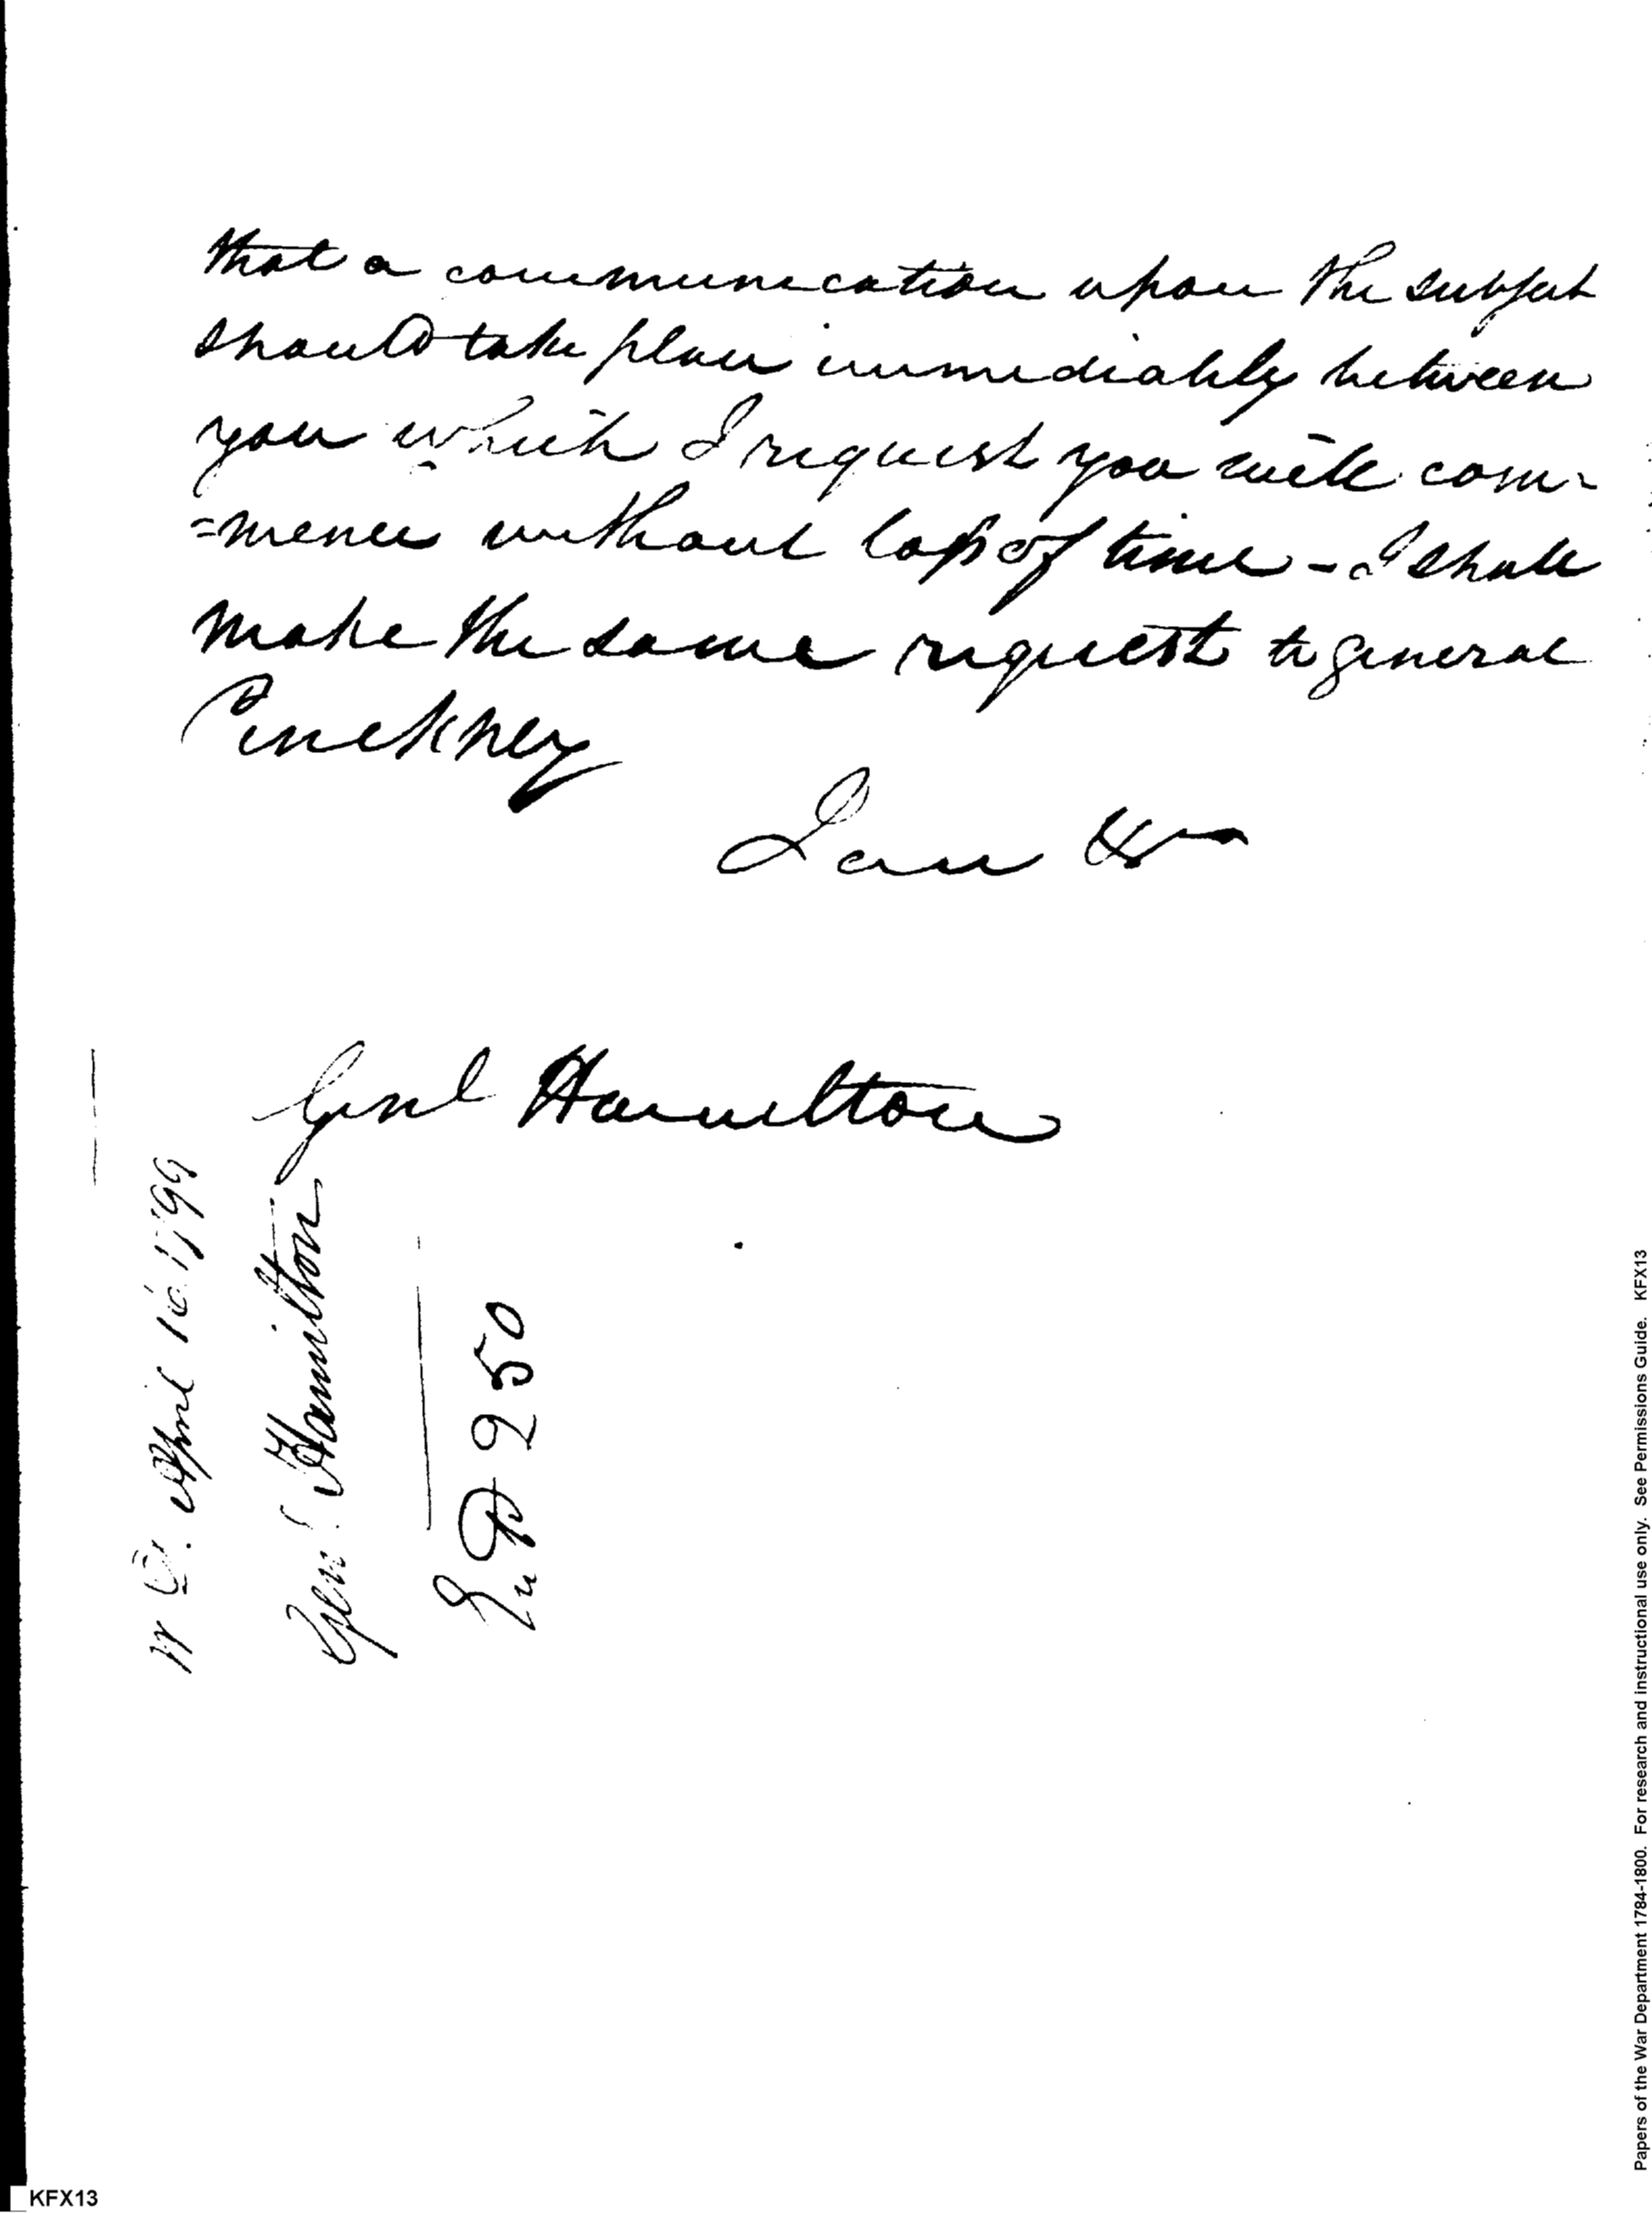 that a communication upon the subject
should take place immediately between
you which I request you will com-
=mence without loss of time - I shall
make the same request to General
Pinckney
I am &
Genl Hamilton
W D. April 16. 1799
Genl. Hamilton
250
Papers of the War Department 1784-1800. For research and instructional use only. See Permissions Guide. KFX13
KFX13